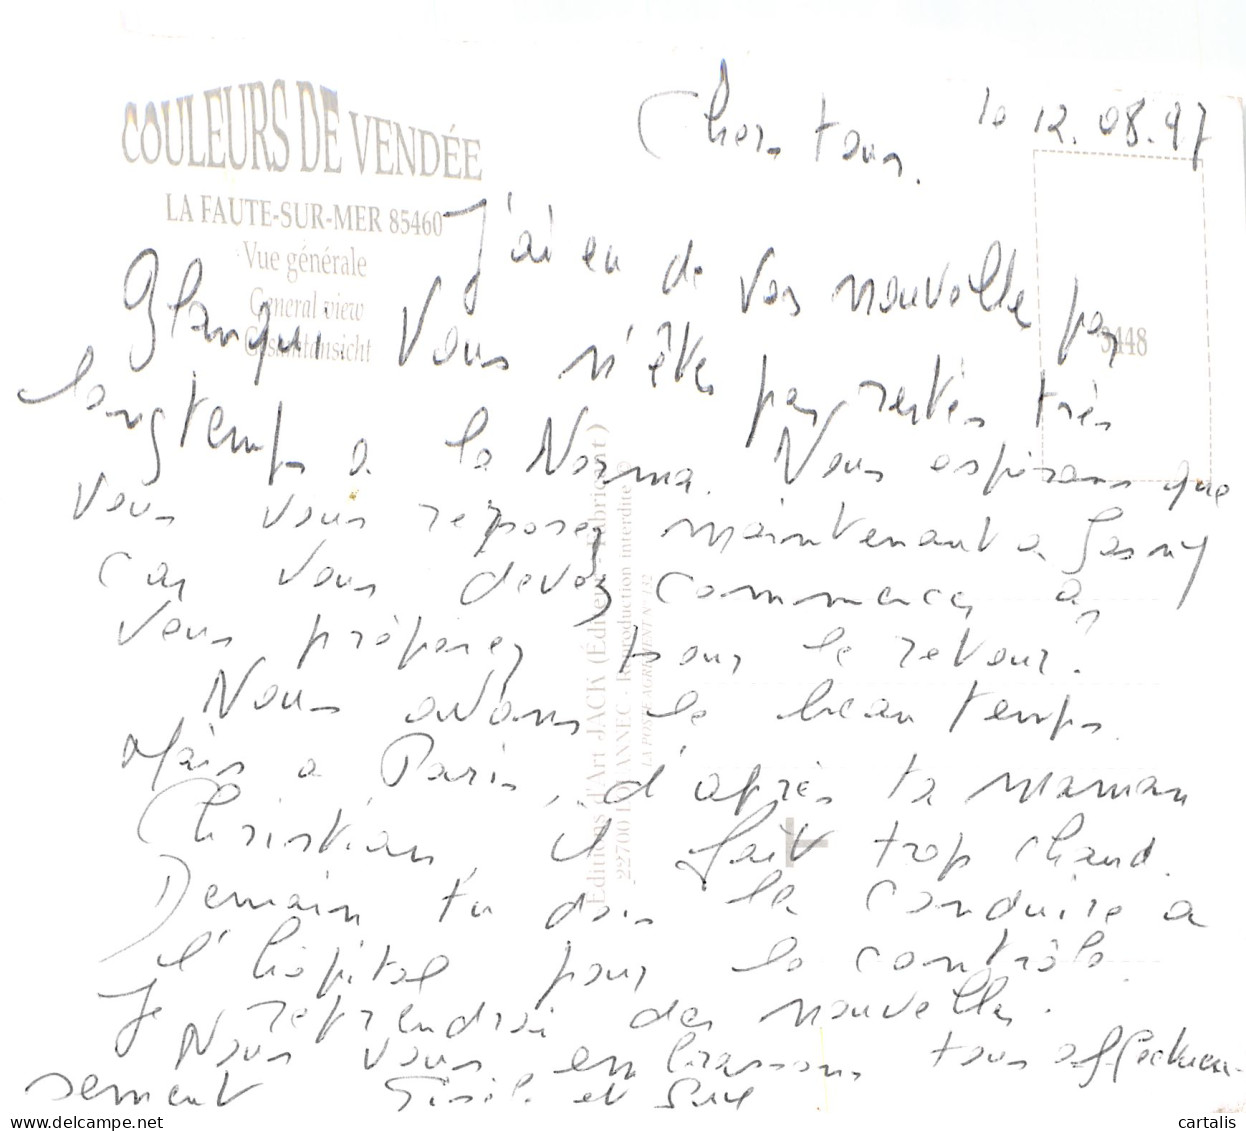 COULEURS DE VENDÉE
LA FAUTE-SUR-MER 85460
Vue générale
General view
Gesamtansicht
3448
Éditions d'Art JACK (Éditeur - Fabricant)
22700 LOUANNEC - Reproduction interdite
LA POSTE AGRÉMENT N° 132
le 12.08.97
Chers tous.
J'ai eu de vos nouvelle par
Vous n'êtes pas restés très
longtemps a la Norma. Nous espérons que
vous vous reposez maintenant a Gasny
car vous devez commencer à
vous préparer pour le retour.
Nous avons le beau temps.
Mais a Paris, d'après ta maman
Christian, il fait trop chaud.
Demain tu dois la conduire a
l'hôpital pour le contrôle.
Je reprendrai des nouvelles.
Nous vous embrassons tous affectueu-
sement et
cartalis
delcampe.net